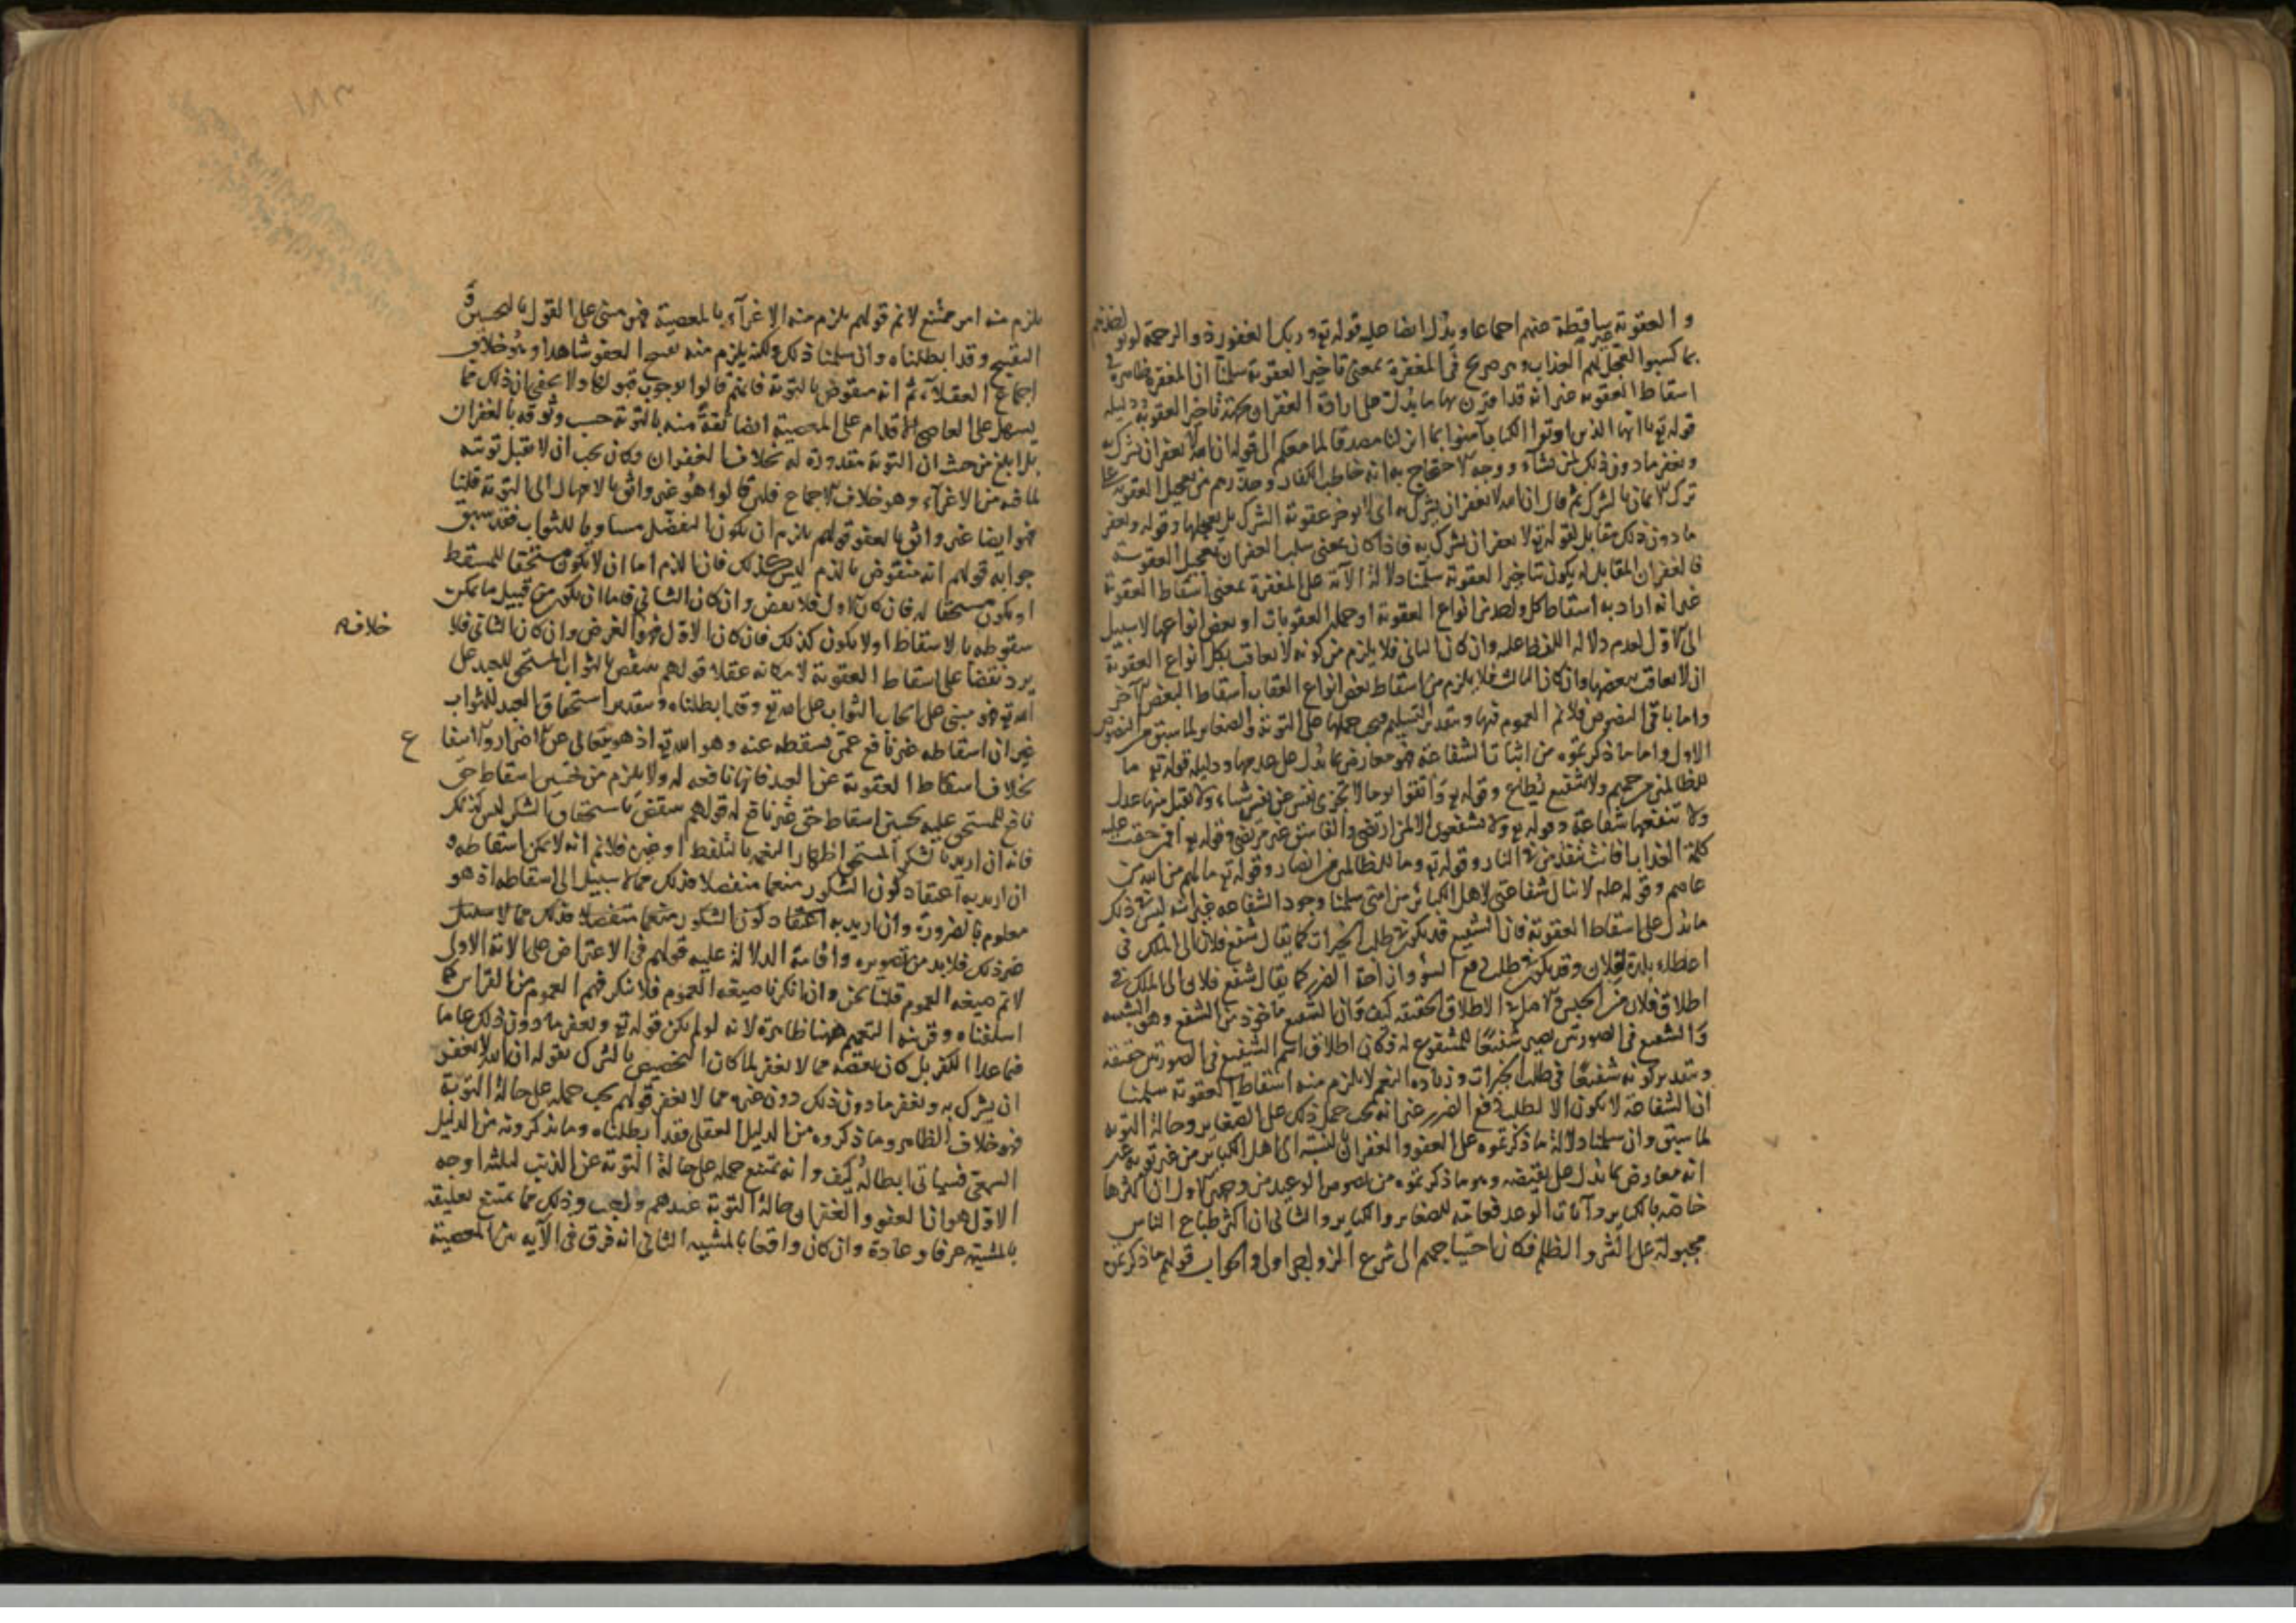 والعقوبة غير ساقطة عنهم اجماعا ويدل ايضا عليه قوله تع وربك الغفور ذو الرحمة لو يؤاخذهم
بما كسبوا لعجل لهم العذاب وهو صريح في المغفرة بمعنى تاخير العقوبة سلمنا ان المغفرة ظاهرة في
اسقاط العقوبة غير انه قد اقترن بها ما يدل على ارادة الغفران بجهة تاخير العقوبة ودليله
قوله تع يا ايها الذين اوتوا الكتاب آمنوا بما انزلنا مصدقا لما معكم الى قوله ان الله لا يغفر ان يشرك به
ويغفر ما دون ذلك لمن يشآء ووجه الاحتجاج به انه خاطب الكفار وحذرهم من تعجيل العقوبة على
ترك الايمان بالشرك ثم قال ان الله لا يغفر ان يشرك به اى لا يوخر عقوبة الشرك بل يعجلها وقوله ويغفر
ما دون ذلك مقابل لقوله تع لا يغفر ان يشرك به فاذا كان معنى سلب الغفران تعجيل العقوبة
فالغفران المقابل له يكون بتاخير العقوبة سلمنا دلالة الآية على المغفرة بمعنى اسقاط العقوبة
غير انه اراد به اسقاط كل واحد من انواع العقوبة او جملة العقوبات او بعض انواعها لا سبيل
الى الاول لعدم دلالة اللفظ عليه وان كان الثاني فلا يلزم من كونه لا يعاقب بكل انواع العقوبة
ان لا يعاقب ببعضها وان كان الثالث فلا يلزم من اسقاط بعض انواع العقاب اسقاط البعض الآخر
واما باقي النصوص فلا نم العموم فيها وبتقدير التسليم فيجب حملها على التوبة والصغاير لما سبق من النصوص
الاول واما ما ذكرتموه من اثبات الشفاعة فهو معارض بما يدل على عدمها ودليله قوله تع ما
للظالمين من حميم ولا شفيع يطاع وقوله تع واتقوا يوما لا تجزي نفس عن نفس شيئا ولا يقبل منها عدل
ولا تنفعها شفاعة وقوله تع ولا يشفعون الا لمن ارتضى والفاسق غير مرتضى وقوله تع افمن حقت عليه
كلمة العذاب افانت تنقذ من في النار وقوله تع وما للظالمين من انصار وقوله تع ما لهم من الله من
عاصم وقوله عليه لا تنال شفاعتي لاهل الكبائر من امتي سلمنا وجود الشفاعه غير انه ليس في ذلك
ما يدل على اسقاط العقوبة فان الشفيع قد يكون في طلب الخيرات كما يقال شفع فلان الى الملك في
اعطاء بلدة لفلان وقد يكون في طلب دفع السوء وازاحة الضرر كما يقال شفع فلان الى الملك في
اطلاق فلان من الحبس والاصل في الاطلاق الحقيقة كيف وان الشفيع ماخوذ من الشفع وهو التشبيه
والشفيع في الصورتين يصير شفيعا للمشفوع له فكان اطلاق اسم الشفيع في الصورتين حقيقة
وبتقدير كونه شفيعا في طلب الخيرات وزيادة النعم لا يلزم منه اسقاط العقوبة سلمنا
ان الشفاعة لا تكون الا لطلب دفع الضرر غير انه يجب حمل ذلك على الصغاير وحالة التوبة
لما سبق وان سلمنا دلالة ما ذكرتموه على العفو والغفران بالنسبة الى اهل الكبائر من غير توبة غير
انه معارض بما يدل على نقيضه وهو ما ذكرتموه من نصوص الوعيد من وجهين الاول ان اكثرها
خاصة بالكباير وآيات الوعد فعامة للصغاير والكباير والثاني ان اكثر طباع الناس
مجبولة على الشر والظلم فكان احتياجهم الى شرع الزواجر اولى والجواب قولهم ما ذكرتموه
يلزم منه امر ممتنع لا نم قولهم يلزم منه الاغرآء بالمعصية فهو مبنى على القول بالتحسين و
التقبيح وقد ابطلناه وان سلمنا ذلك ولكنه يلزم منه تقبيح العفو شاهدا وهو خلاف
اجماع العقلاء ثم انه منقوض بالتوبة فانهم قالوا بوجوب قبولها ولا يخفى ان ذلك مما
يسهل على العاصي الاقدام على المعصية ايضا ثقة منه بالتوبة حسب وثوقه بالغفران
بل ابلغ من حيث ان التوبة مقدورة له بخلاف الغفران وكان يجب ان لا تقبل توبته
لما فيه من الاغرآء وهو خلاف الاجماع فلئن قالوا هو غير واثق بالامهال الى التوبة قلنا
فهو ايضا غير واثق بالعفو قولهم يلزم ان يكون التفضل مساويا للثواب فقد سبق
جوابه قولهم انه منقوض بالذم ليس كذلك فان الذم اما ان لا يكون مستحقا للمسقط
او يكون مستحقا له فان كان الاول فلا نقض وان كان الثاني فاما ان يكون من قبيل ما يمكن
سقوطه بالاسقاط او لا يكون كذلك فان كان الاول فهو الغرض وان كان الثاني فلا
خلافه
يرد نقضا على اسقاط العقوبة لامكانه عقلا قولهم ينتقض بالثواب المستحق للعبد على
الله تع فهو مبنى على ايجاب الثواب على الله تع وقد ابطلناه وبتقدير استحقاق العبد للثواب
غير ان اسقاطه غير نافع عمن يسقطه عنه وهو الله تع اذ هو يتعالى عن الاضرار والانتفا
ع
بخلاف اسقاط العقوبة عن العبد فانها نافعه له ولا يلزم من تحسين اسقاط حق
نافع للمستحق عليه تحسين اسقاط حق غير نافع له قولهم ينتقض باستحقاق الشكر ليس كذلك
فانه ان اريد بالشكر المستحق اظهار النعمة بالتلفظ او غيره فلا نم انه لا يمكن اسقاطه و
ان اريد به اعتقاد كون الشكور منعما متفضلا فذلك مما لا سبيل الى اسقاطه اذ هو
معلوم بالضرورة وان اريد به اعتقاد كون الشكور منعما متفضلا فذلك مما لا سبيل
غير ذلك فلا بد من تصويره واقامة الدلالة عليه قولهم في الاعتراض على الآية الاولى
لا نم صيغه العموم قلنا نحن وان انكرنا صيغه العموم فلا ننكر فهم العموم من القراين كما
اسلفناه وقرينه التعميم ههنا ظاهرة لانه لو لم يكن قوله تع ويغفر ما دون ذلك عاما
فيما عدا الكفر بل كان بعضه مما لا يغفر لما كان التخصيص بالشرك بقوله ان الله لا يغفر
ان يشرك به ويغفر ما دون ذلك دون غيره مما لا يغفر قولهم يجب حمله على حالة التوبة
فهو خلاف الظاهر وما ذكروه من الدليل العقلي فقد ابطلناه وما يذكرونه من الدليل
السمعى فسياتى ابطاله كيف وانه يمتنع حمله على حالة التوبة عن الذنب لثلثة اوجه
الاول هو ان العفو والغفران حالة التوبة عندهم واجب وذلك مما يمتنع تعليقه
بالمشيئه عرفا وعادة وان كان واقعا بالمشيه الثاني انه فرق في الآيه بين المعصية